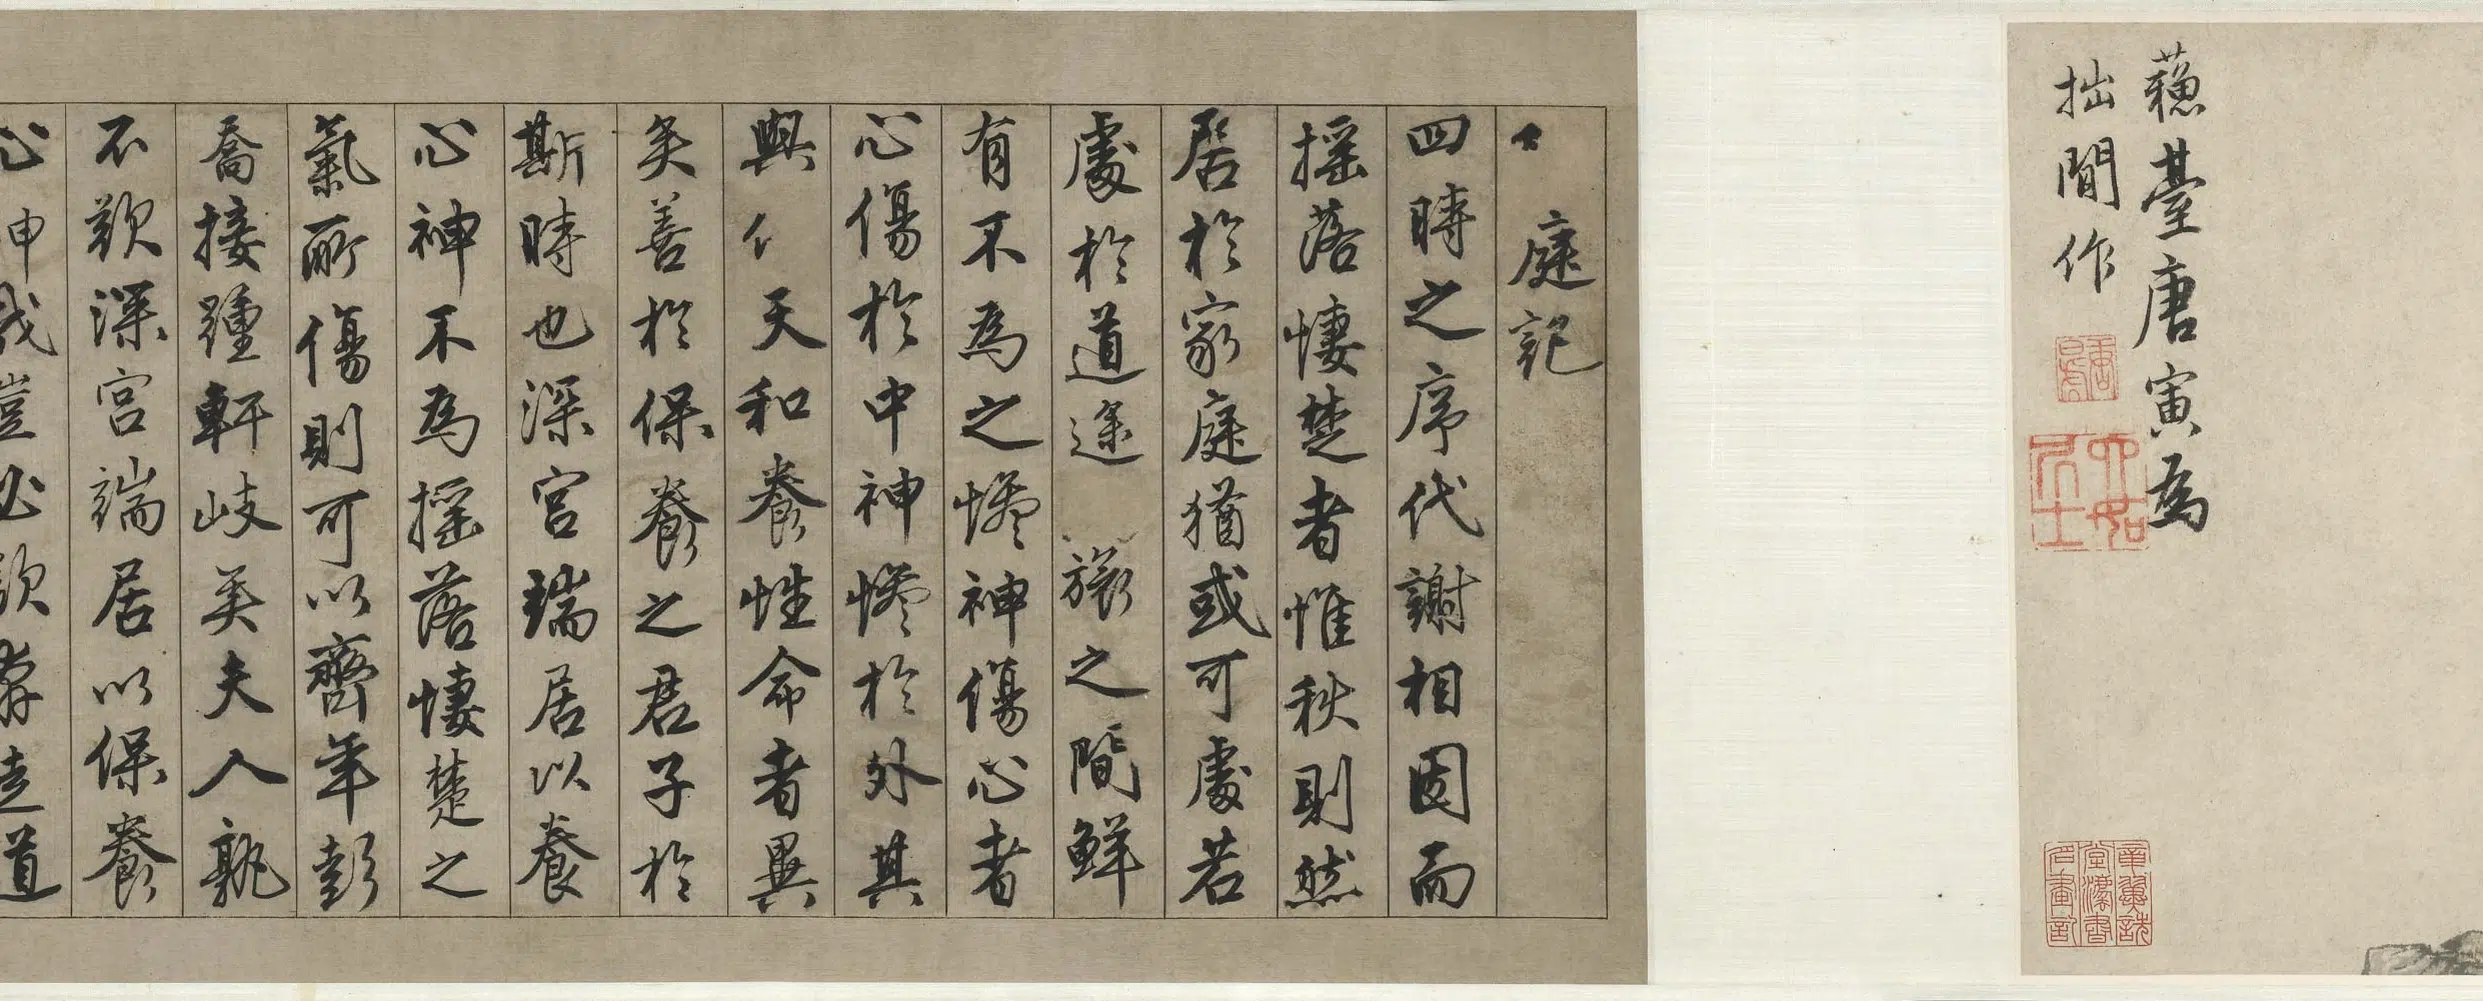 蘓臺唐寅為
拙閒作
庭記
四時之序代謝相因而
揺落悽楚者惟秋則然
居於家庭猶或可處若
處於道途 旅之間鮮
有不為之慘神傷心者
心傷於中神慘於外其
與 天和養性命者異
矣善於保養之君子於
斯時也深宮端居以養
心神不為揺落悽楚之
氣所傷則可以齊年彭
喬接踵軒岐矣夫人孰
不欲深宮端居以保養
心神哉豈必欲奔走道